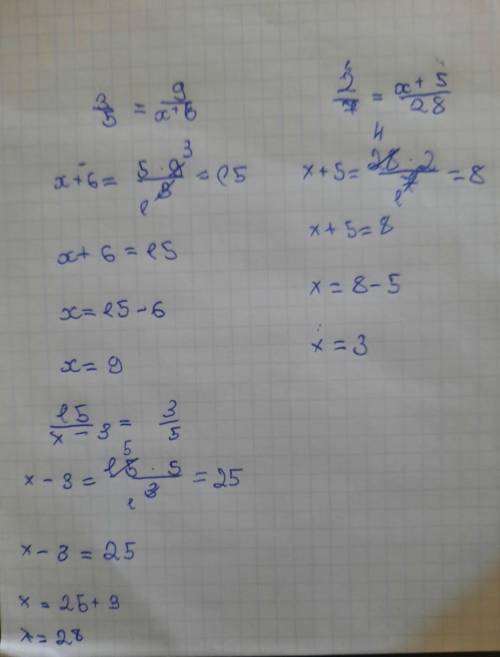 3/5 = 9/(x+6)
x+6 = (5·9)/3 = 15
3
1
x+6 = 15
x = 15-6
x = 9
2/7 = (x+5)/28
x+5 = (28·2)/7 = 8
4
1
x+5 = 8
x = 8-5
x = 3
15/(x-3) = 3/5
x-3 = (15·5)/3 = 25
5
1
x-3 = 25
x = 25+3
x = 28